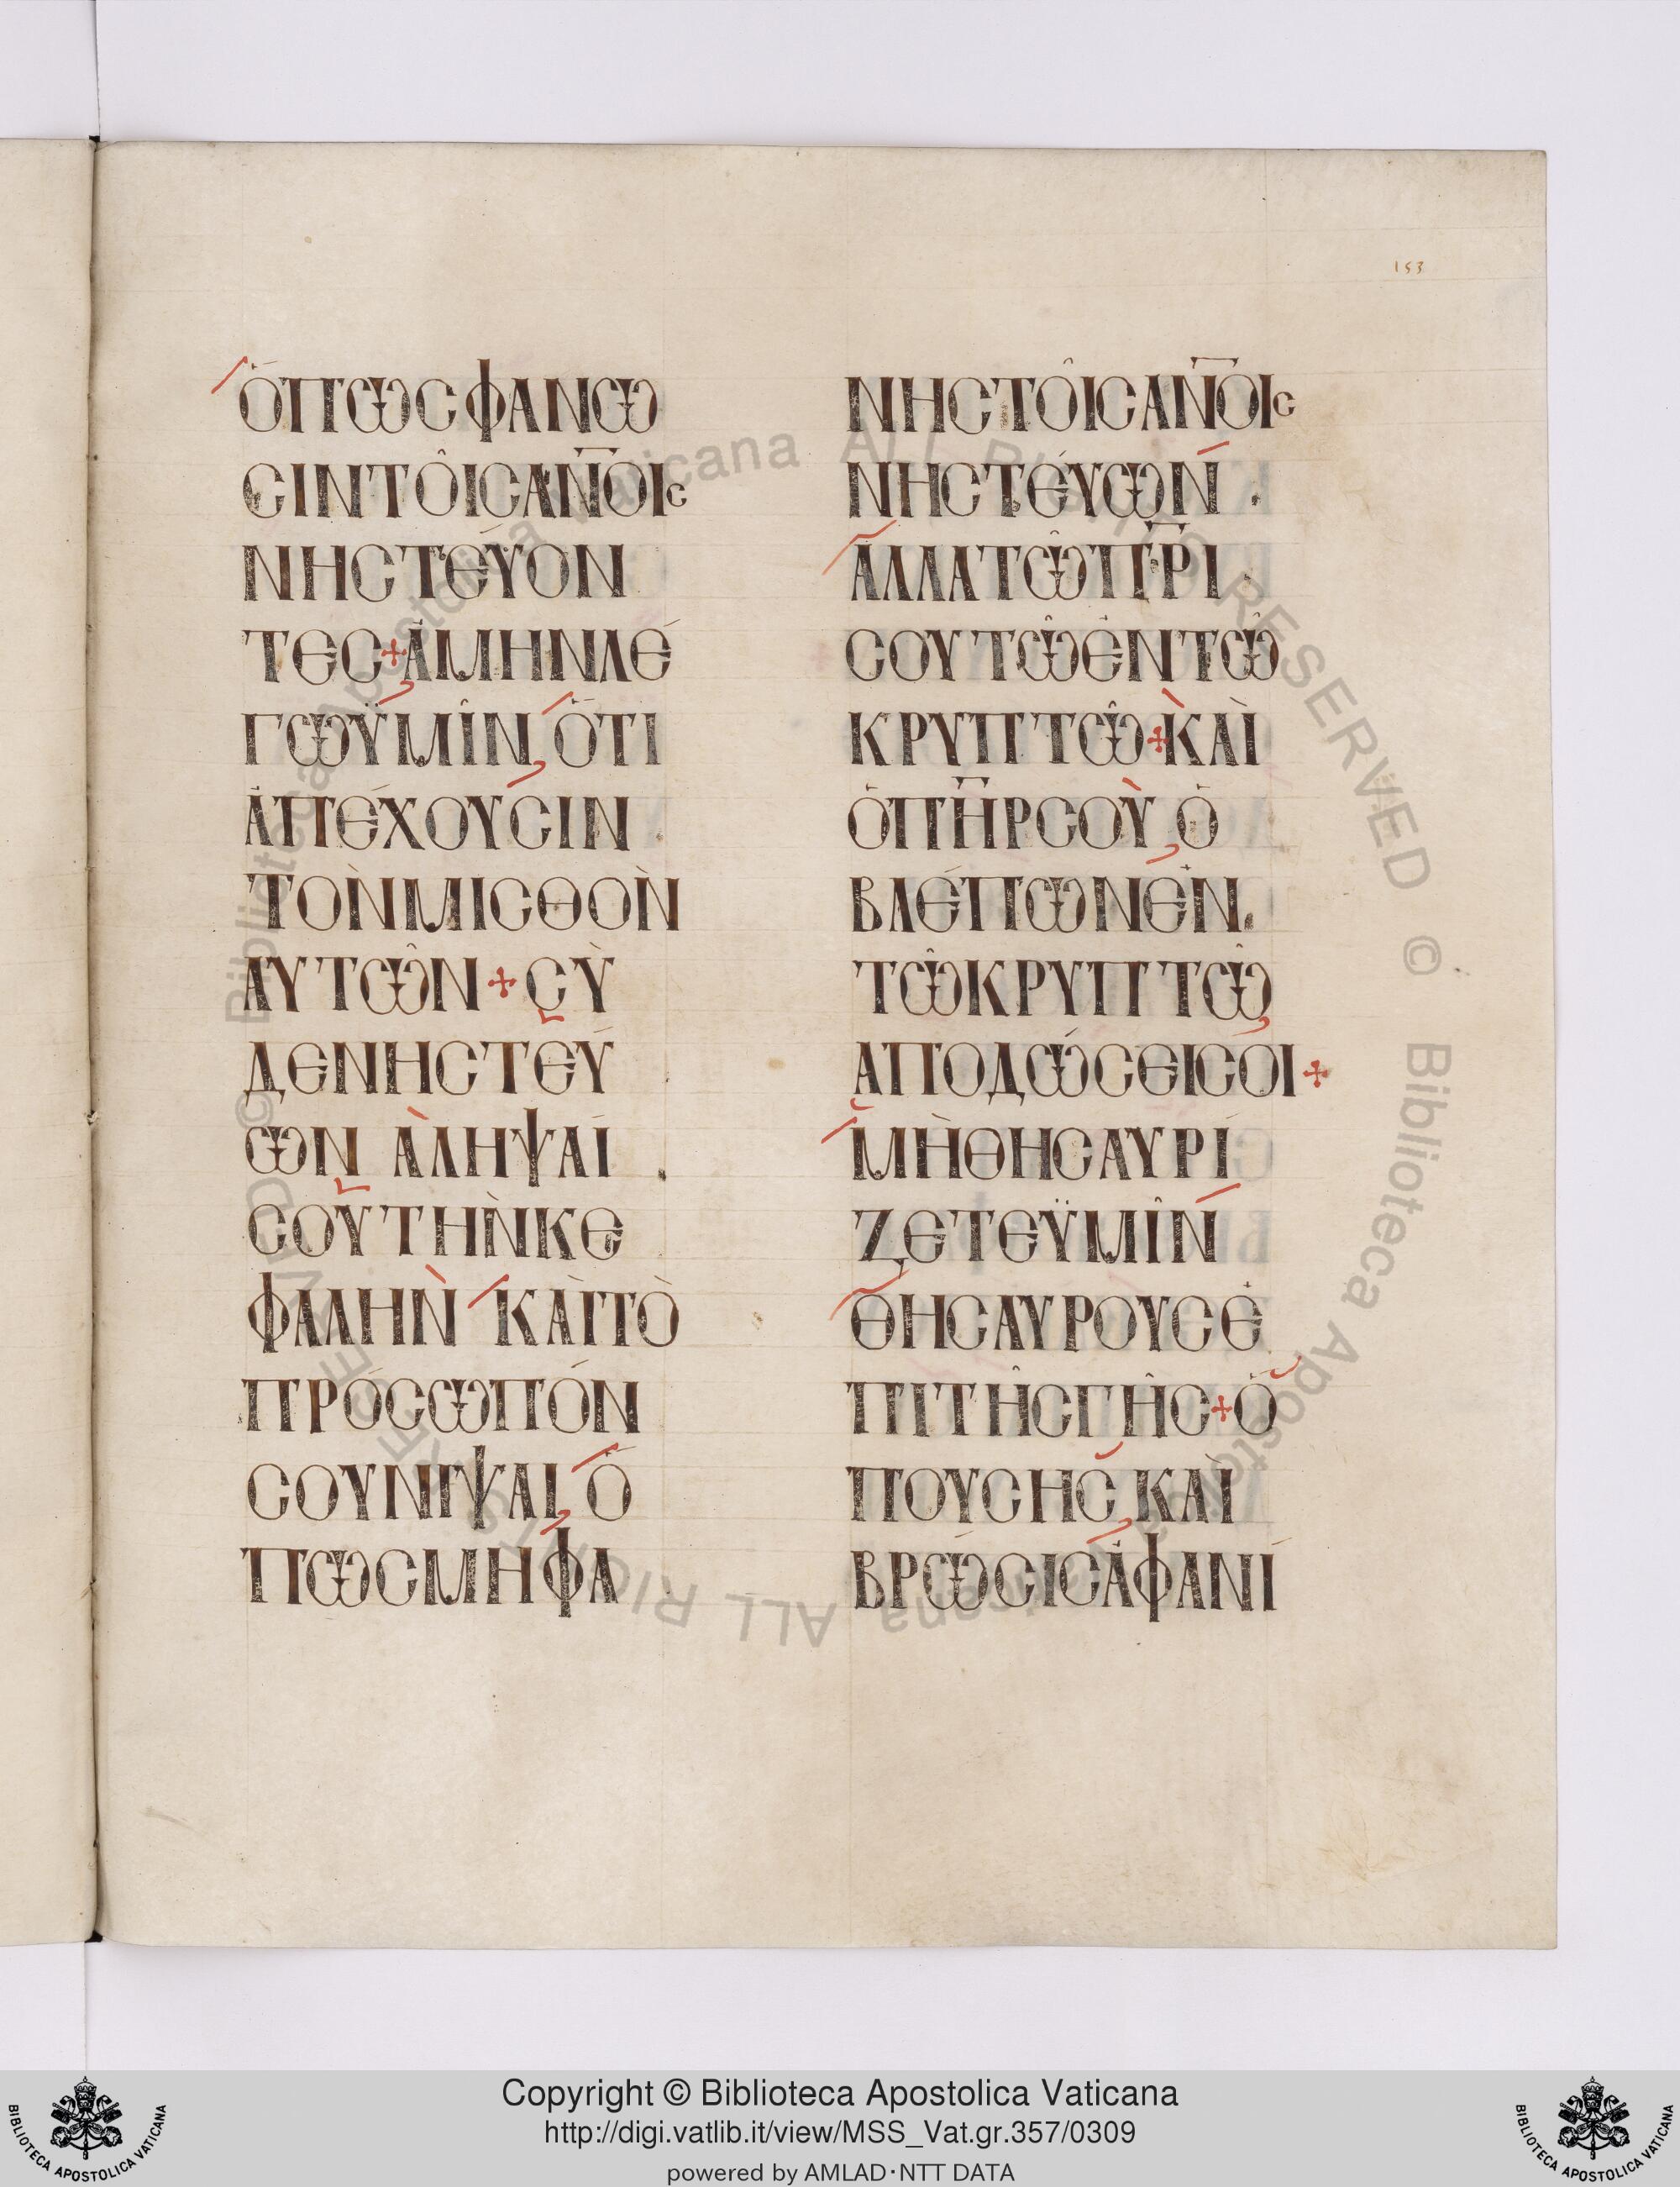 153
ὍΠΩϹΦΑΝΩ
ϹΙΝΤΟΙ͂ϹΑΝ̅Ο̅ΙϹ
ΝΗϹΤΕΎΟΝ
ΤΕϹ+ἈΜΗΝΛΈ
ΓΩΫΜΙ͂Ν, ὍΤΙ
ἈΠΈΧΟΥϹΙΝ
ΤῸΝΜΙϹΘῸΝ
ΑΥΤΩ͂Ν+ϹῪ
ΔΕΝΗϹΤΕΎ
ΩΝ ἈΛΗΨΑΊ
ϹΟΥΤῊΝΚΕ
ΦΑΛῊΝ ΚΑῚΤῸ
ΠΡΌϹΩΠΟΝ
ϹΟΥΝΊΨΑΙ, Ὅ
ΠΩϹΜΗΦΑ
ΝΗϹΤΟΙ͂ϹΑΝ̅Ο̅ΙϹ
ΝΗϹΤΕΎΩΝ
ἈΛΛΑΤΩ͂Π̅Ρ̅Ι
ϹΟΥΤΩ͂ἘΝΤΩ͂
ΚΡΥΠΤΩ͂+ΚΑῚ
ὉΠΗ̅ΡϹΟΥ, Ὁ
ΒΛΈΠΩΝἘΝ
ΤΩ͂ΚΡΥΠΤΩ͂
ΑΠΟΔΏϹΕΙϹΟΙ+
ΜῊΘΗϹΑΥΡΊ
ΖΕΤΕΫΜΙ͂Ν
ΘΗϹΑΥΡΟΥϹἘ
ΠΙΤΗ͂ϹΓΗ͂Ϲ+Ὅ
ΠΟΥϹΗϹ, ΚΑῚ
ΒΡΩ͂ϹΙϹἈΦΑΝΊ
© Biblioteca Apostolica Vaticana ALL RIGHTS RESERVED
© Biblioteca Apostolica Vaticana ALL RIGHTS RESERVED
Copyright © Biblioteca Apostolica Vaticana
http://digi.vatlib.it/view/MSS_Vat.gr.357/0309
powered by AMLAD·NTT DATA
BIBLIOTECA APOSTOLICA VATICANA
BIBLIOTECA APOSTOLICA VATICANA